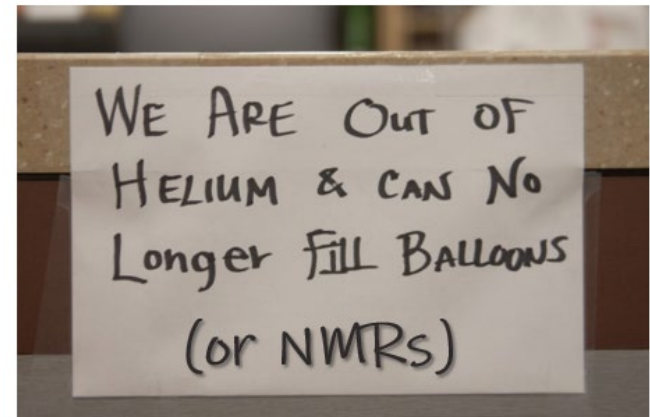 WE ARE OUT OF
HELIUM & CAN NO
Longer FILL BALLOONS
(or NMRs)